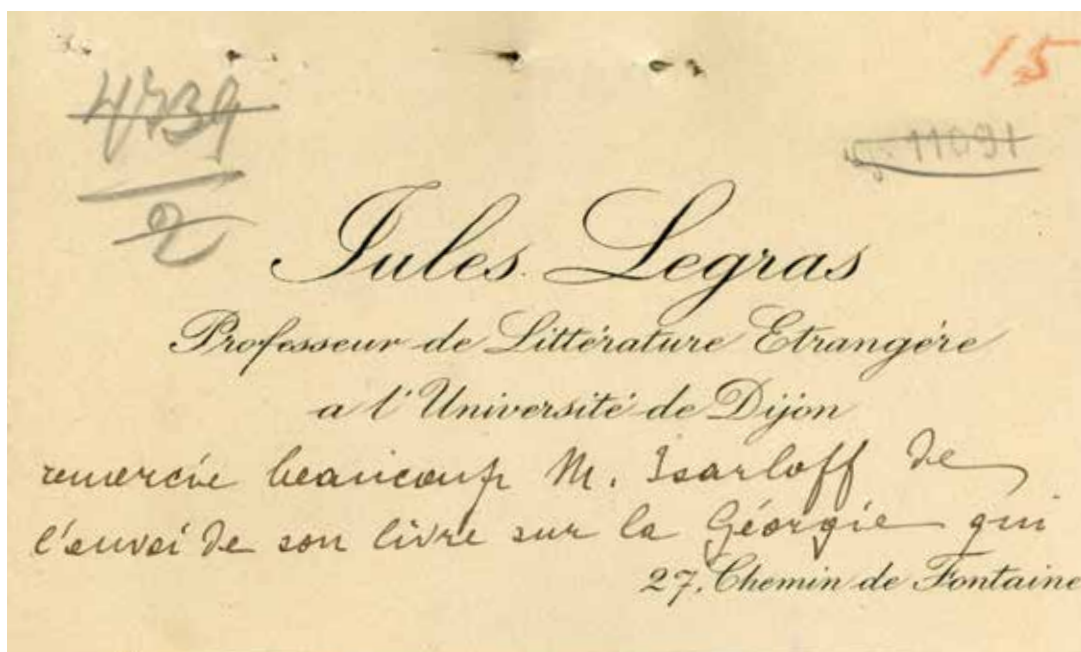 15
4739
2
11091
Jules Legras
Professeur de Littérature Etrangère
a l'Université de Dijon
remercie beaucoup M. Isarloff de
l'envoi de son livre sur la Géorgie qui
27, Chemin de Fontaine